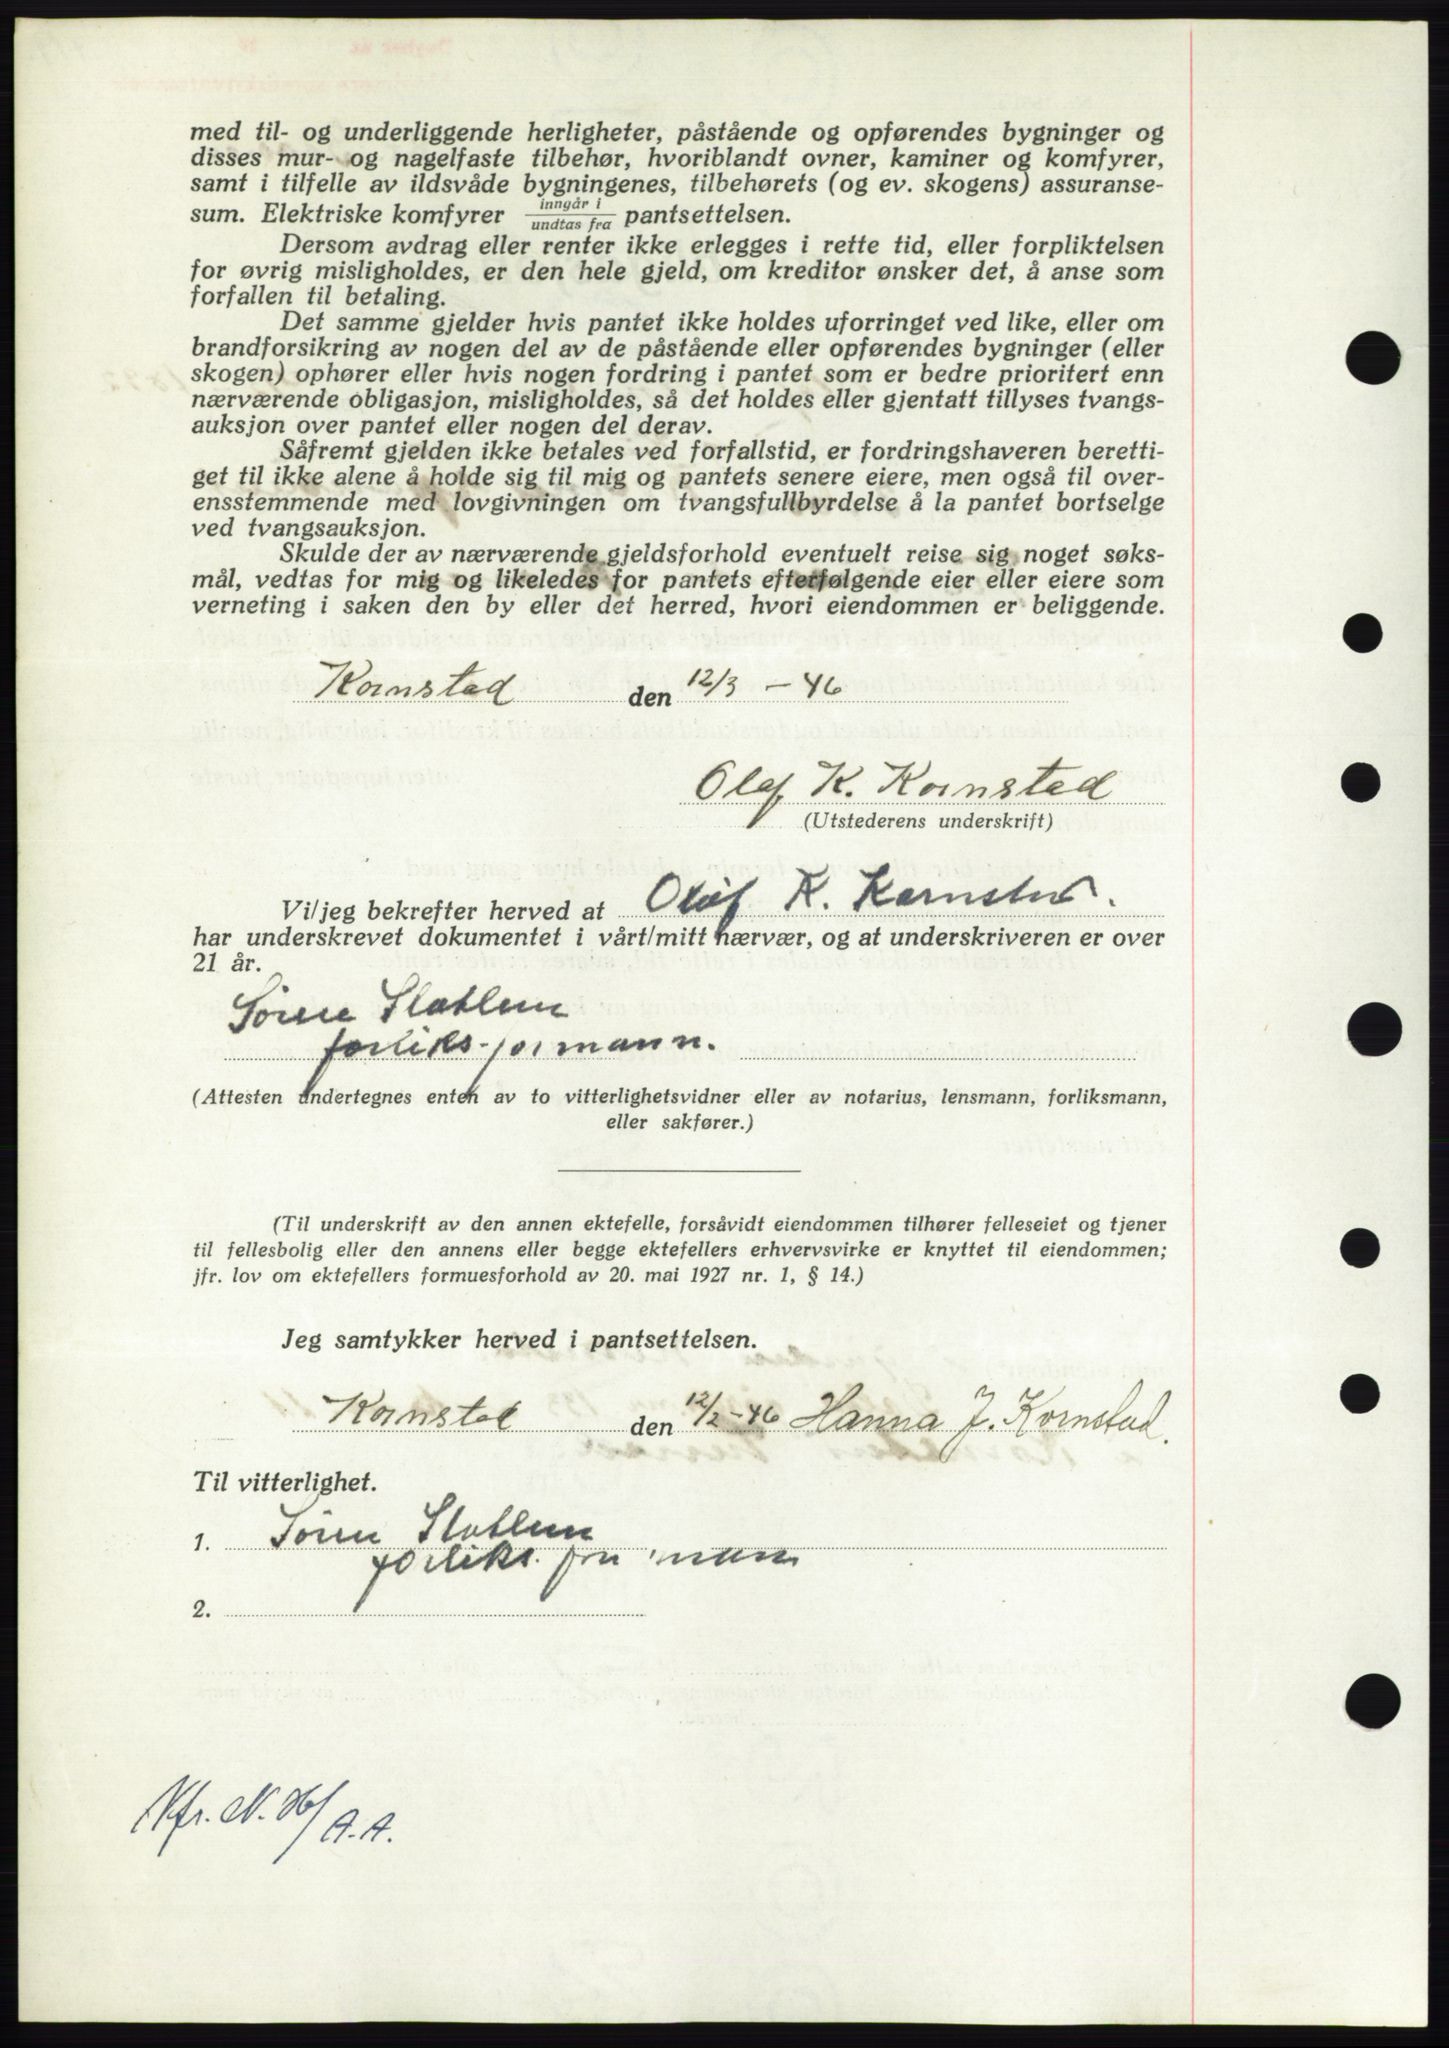 med til- og underliggende herligheter, påstående og opførendes bygninger og
disses mur- og nagelfaste tilbehør, hvoriblandt ovner, kaminer og komfyrer,
samt i tilfelle av ildsvåde bygningenes, tilbehørets (og ev. skogens) assuranse-
sum. Elektriske komfyrer inngår i / undtas fra pantsettelsen.
Dersom avdrag eller renter ikke erlegges i rette tid, eller forpliktelsen
for øvrig misligholdes, er den hele gjeld, om kreditor ønsker det, å anse som
forfallen til betaling.
Det samme gjelder hvis pantet ikke holdes uforringet ved like, eller om
brandforsikring av nogen del av de påstående eller opførendes bygninger (eller
skogen) ophører eller hvis nogen fordring i pantet som er bedre prioritert enn
nærværende obligasjon, misligholdes, så det holdes eller gjentatt tillyses tvangs-
auksjon over pantet eller nogen del derav.
Såfremt gjelden ikke betales ved forfallstid, er fordringshaveren beretti-
get til ikke alene å holde sig til mig og pantets senere eiere, men også til over-
ensstemmende med lovgivningen om tvangsfullbyrdelse å la pantet bortselge
ved tvangsauksjon.
Skulde der av nærværende gjeldsforhold eventuelt reise sig noget søks-
mål, vedtas for mig og likeledes for pantets efterfølgende eier eller eiere som
verneting i saken den by eller det herred, hvori eiendommen er beliggende.
Kornstad den 12/3 - 46
Olaf K. Kornstad
(Utstederens underskrift)
Vi/jeg bekrefter herved at Olaf K. Kornstad.
har underskrevet dokumentet i vårt/mitt nærvær, og at underskriveren er over
21 år.
Sören
forliks-formann.
(Attesten undertegnes enten av to vitterlighetsvidner eller av notarius, lensmann, forliksmann,
eller sakfører.)
(Til underskrift av den annen ektefelle, forsåvidt eiendommen tilhører felleseiet og tjener
til fellesbolig eller den annens eller begge ektefellers erhvervsvirke er knyttet til eiendommen;
jfr. lov om ektefellers formuesforhold av 20. mai 1927 nr. 1, § 14.)
Jeg samtykker herved i pantsettelsen.
Kornstad den 12/2-46 Hanna J. Kornstad.
Til vitterlighet.
1. Sören
forliks. formann
2.
A.A.